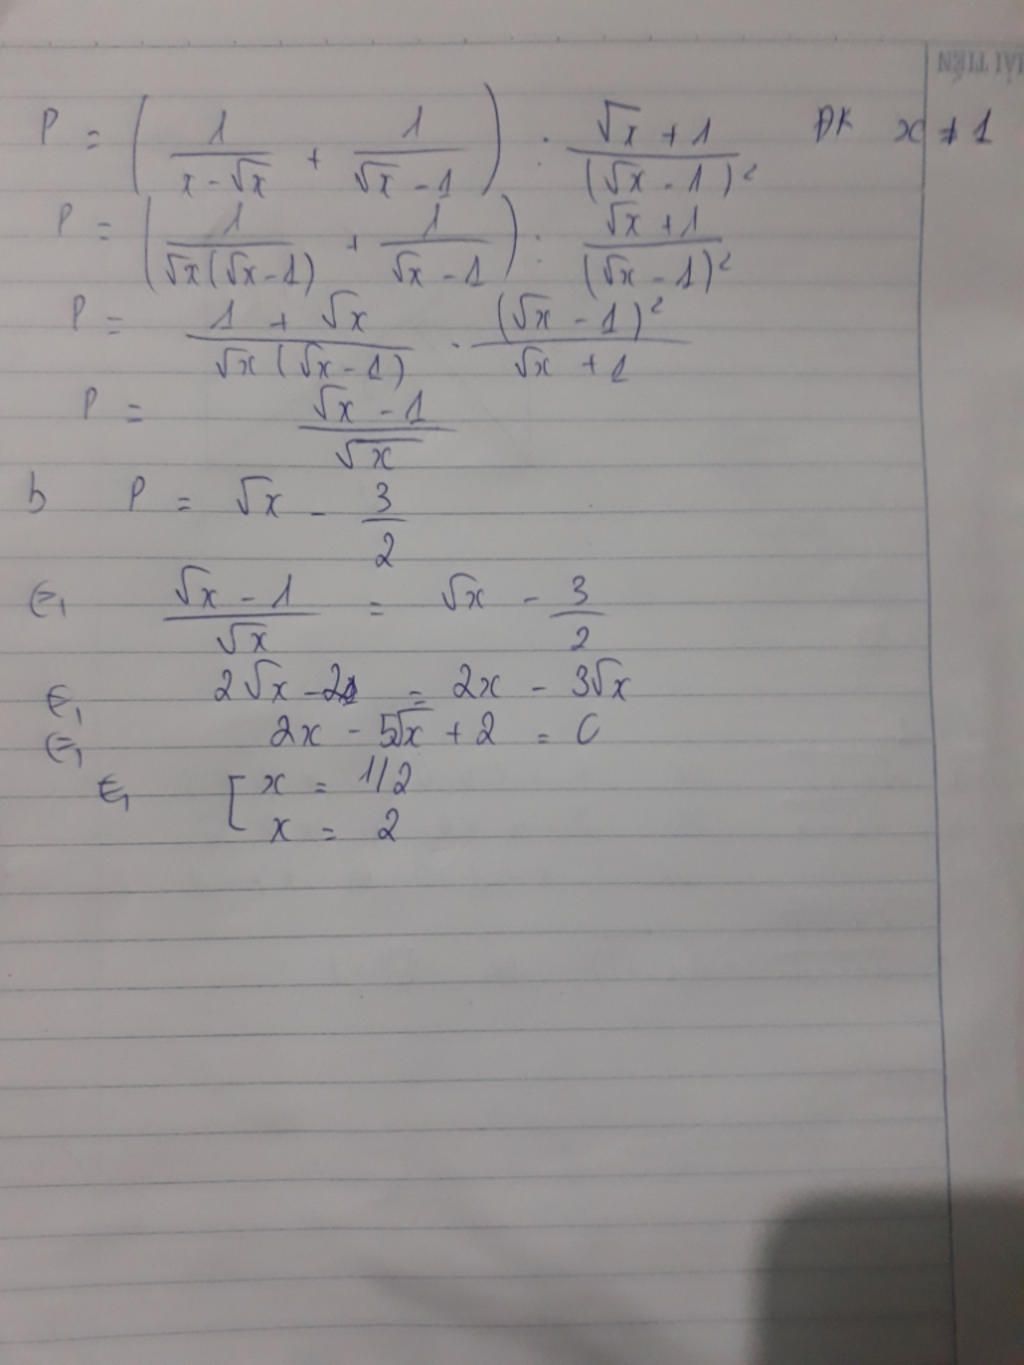 HẢI TIẾN
P = ( 1/(x - √x) + 1/(√x - 1) ) : (√x + 1)/(√x - 1)² ĐK x ≠ 1
P = ( 1/(√x(√x - 1)) + 1/(√x - 1) ) : (√x + 1)/(√x - 1)²
P = (1 + √x)/(√x(√x - 1)) . (√x - 1)²/(√x + 1)
P = (√x - 1)/√x
b P = √x - 3/2
⇔ (√x - 1)/√x = √x - 3/2
⇔ 2√x - 2 = 2x - 3√x
⇔ 2x - 5√x + 2 = 0
⇔ [ x = 1/2
x = 2